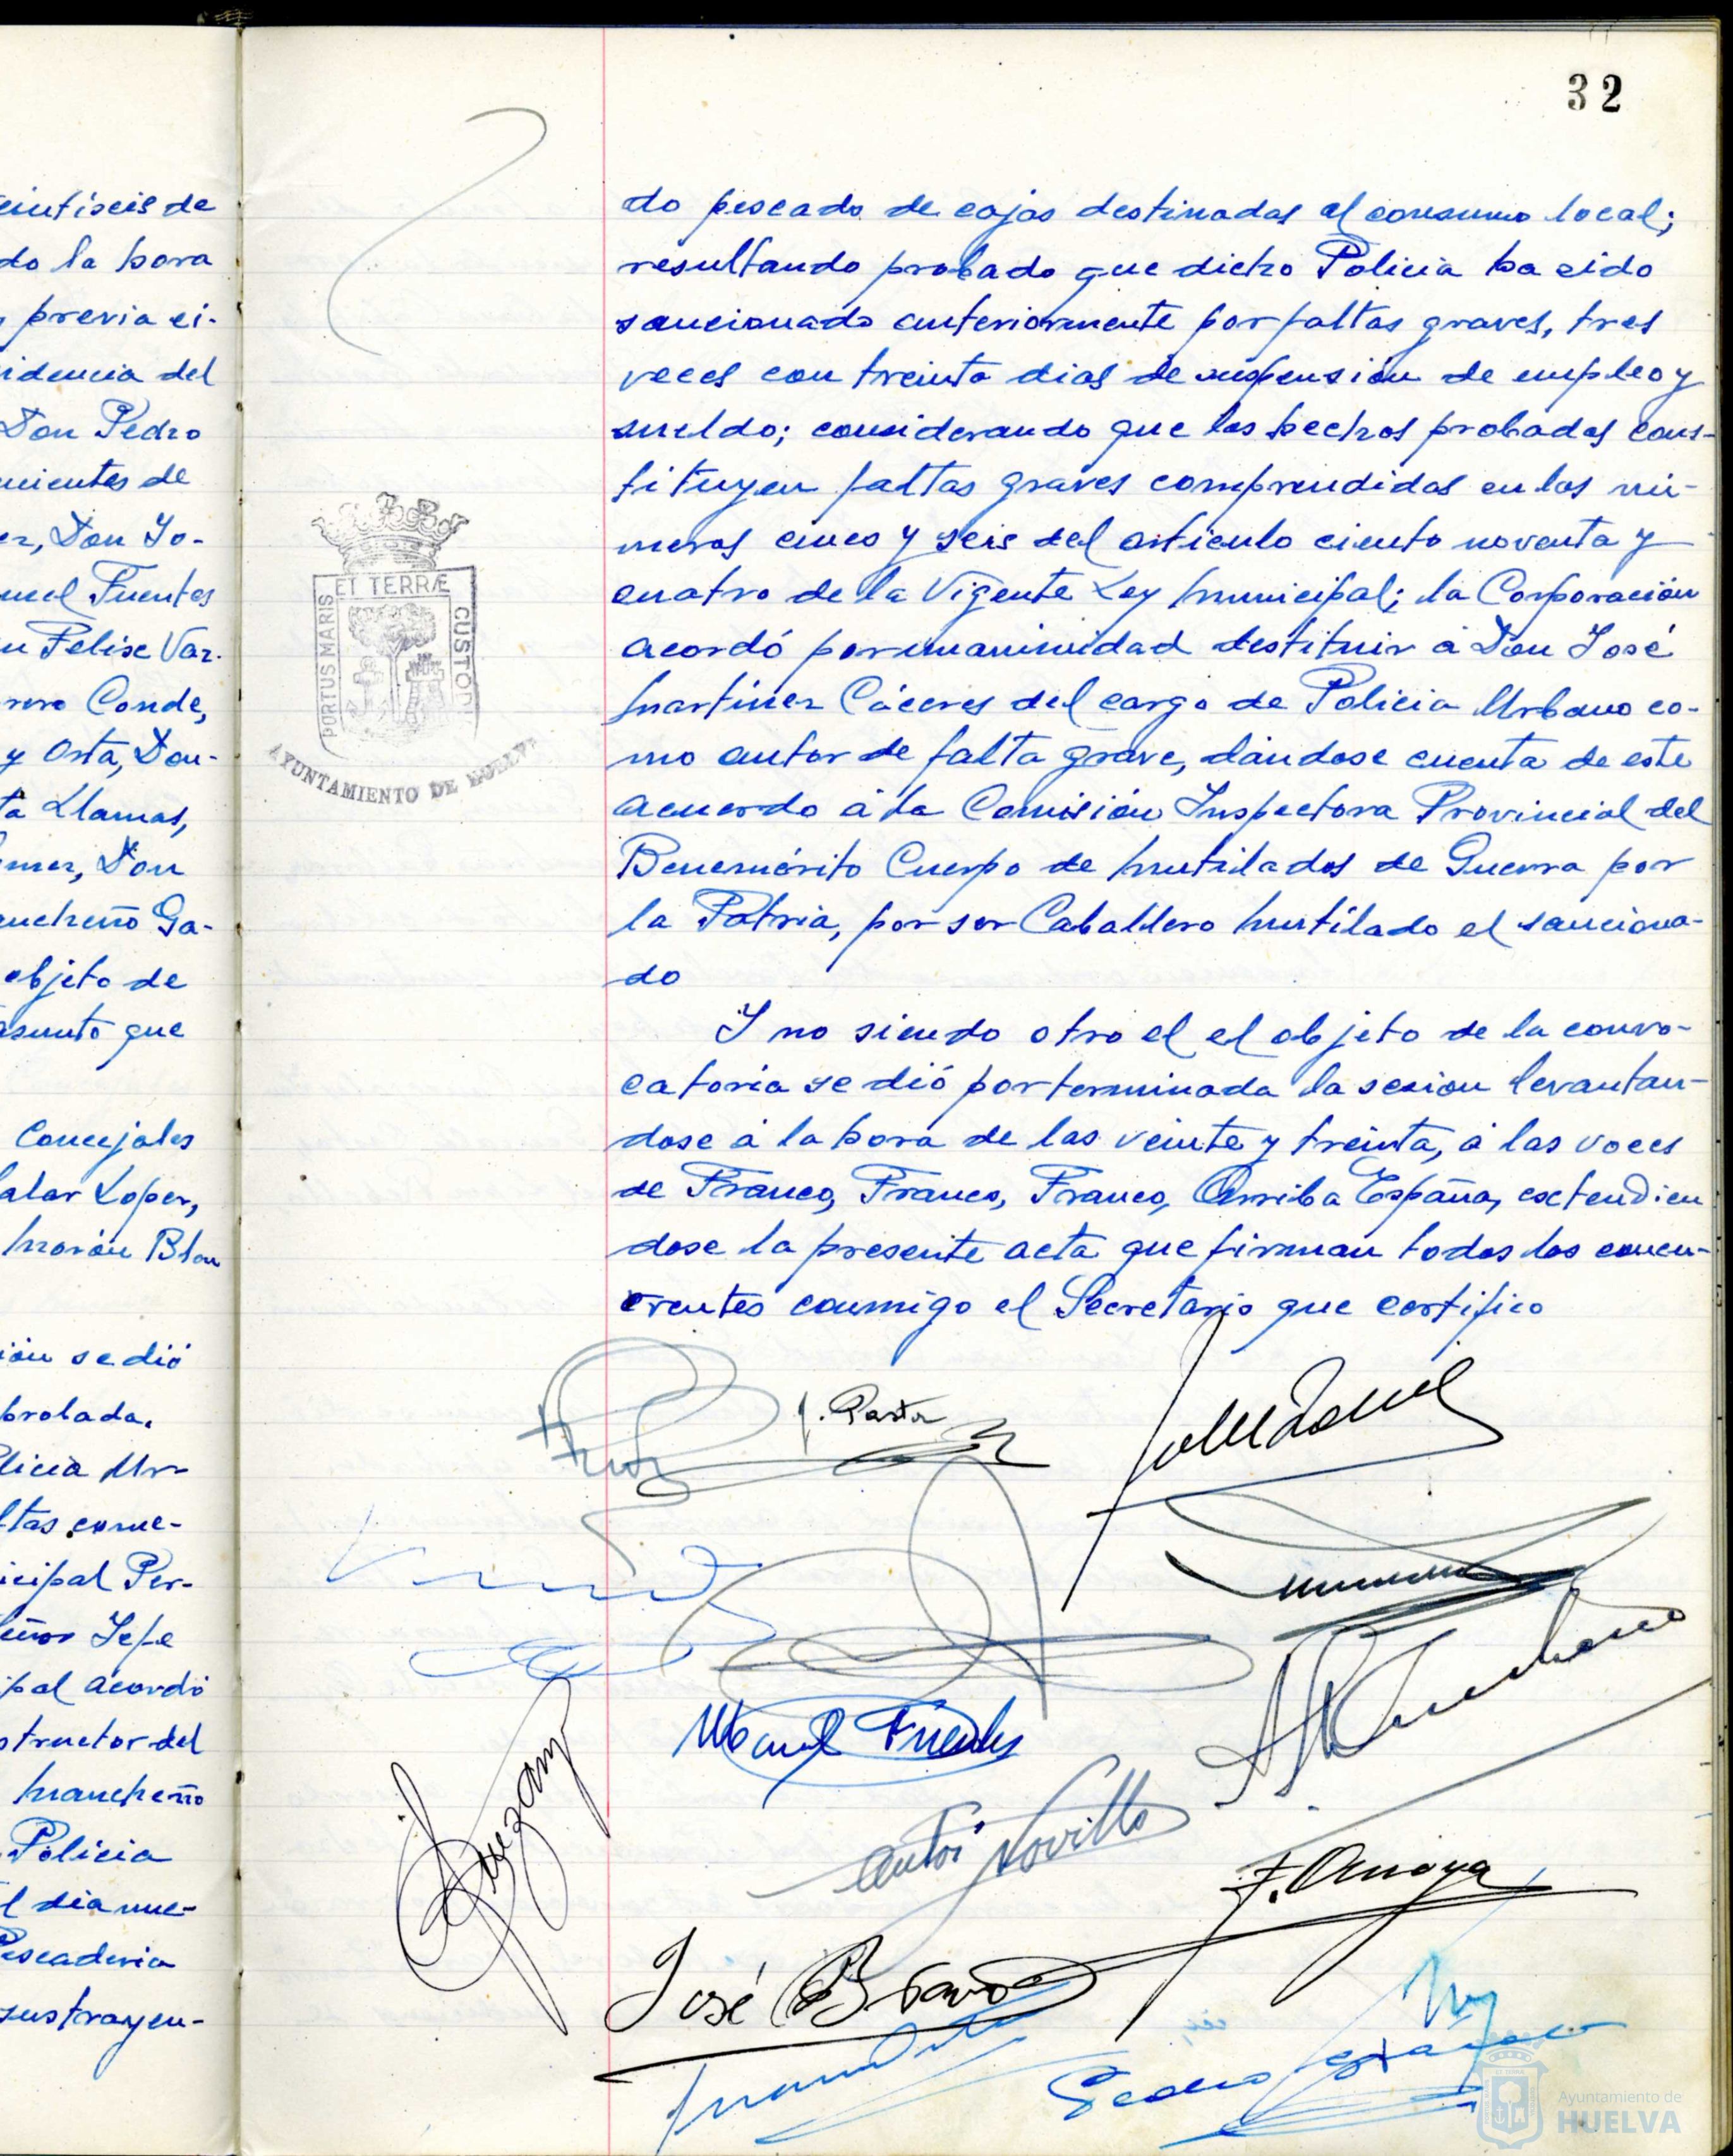 eintiseis de
do la hora
previa ci-
idencia del
Don Pedro
mientes de
er, Don Jo-
nuel Fuentes
n Felise Vaz.
rero Conde,
y Orta, Don
ta Llamas,
mez, Don
ancheño Ga-
objeto de
asunto que
Concejales
alar Lopez,
Morón Blan
ión se dió
probada.
licia Ur-
ltas come-
icipal Per-
eñor Jefe
ipal acordó
structor del
Mancheño
Policia
l dia nue-
Pescaderia
sustrayen-
32
do pescado de cajas destinadas al consumo local;
resultando probado que dicho Policia ha sido
sancionado anteriormente por faltas graves, tres
veces con treinta dias de suspensión de empleo y
sueldo; considerando que los hechos probados cons-
tituyen faltas graves comprendidas en los nú-
meros cinco y seis del articulo ciento noventa y
cuatro de la Vigente Ley Municipal; la Corporación
acordó por unanimidad destituir á Don José
Martinez Cáceres del cargo de Policia Urbano co-
mo autor de falta grave, dándose cuenta de este
acuerdo á la Comisión Inspectora Provincial del
Benemérito Cuerpo de Mutilados de Guerra por
la Patria, por ser Caballero Mutilado el sanciona-
do
Y no siendo otro el el objeto de la convo-
catoria se dió por terminada la sesion levantan-
dose á la hora de las veinte y treinta, á las voces
de Franco, Franco, Franco, Arriba España, extendien
dose la presente acta que firman todos los concu-
rrentes conmigo el Secretario que certifico
PORTUS MARIS ET TERRÆ CUSTODI
AYUNTAMIENTO DE HUELVA
J. Pastor
Manuel Fuentes
Antº Novillo
F. Amaya
José Bravo
Pedro
Ayuntamiento de
HUELVA